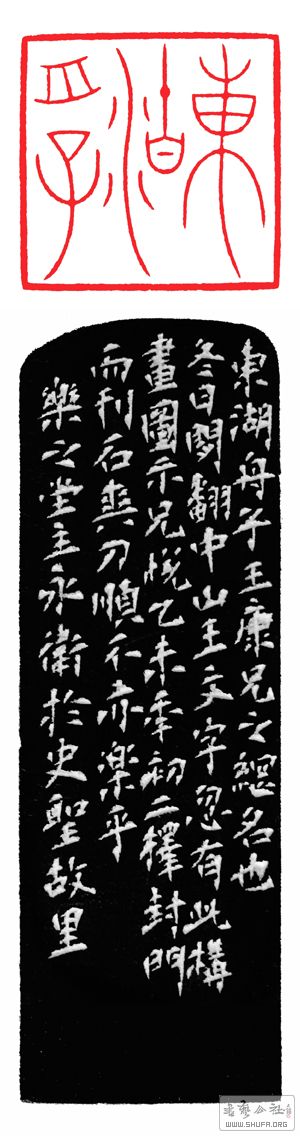 東湖舟子
東湖舟子王康兄之網名也
冬日閑翻中山王文字忽有此構
畫圖示兄悅乙未秊初二擇封門
而刊石爽刀順不亦樂乎
樂之堂主永衛於史聖故里
WWW.SHUFA.ORG